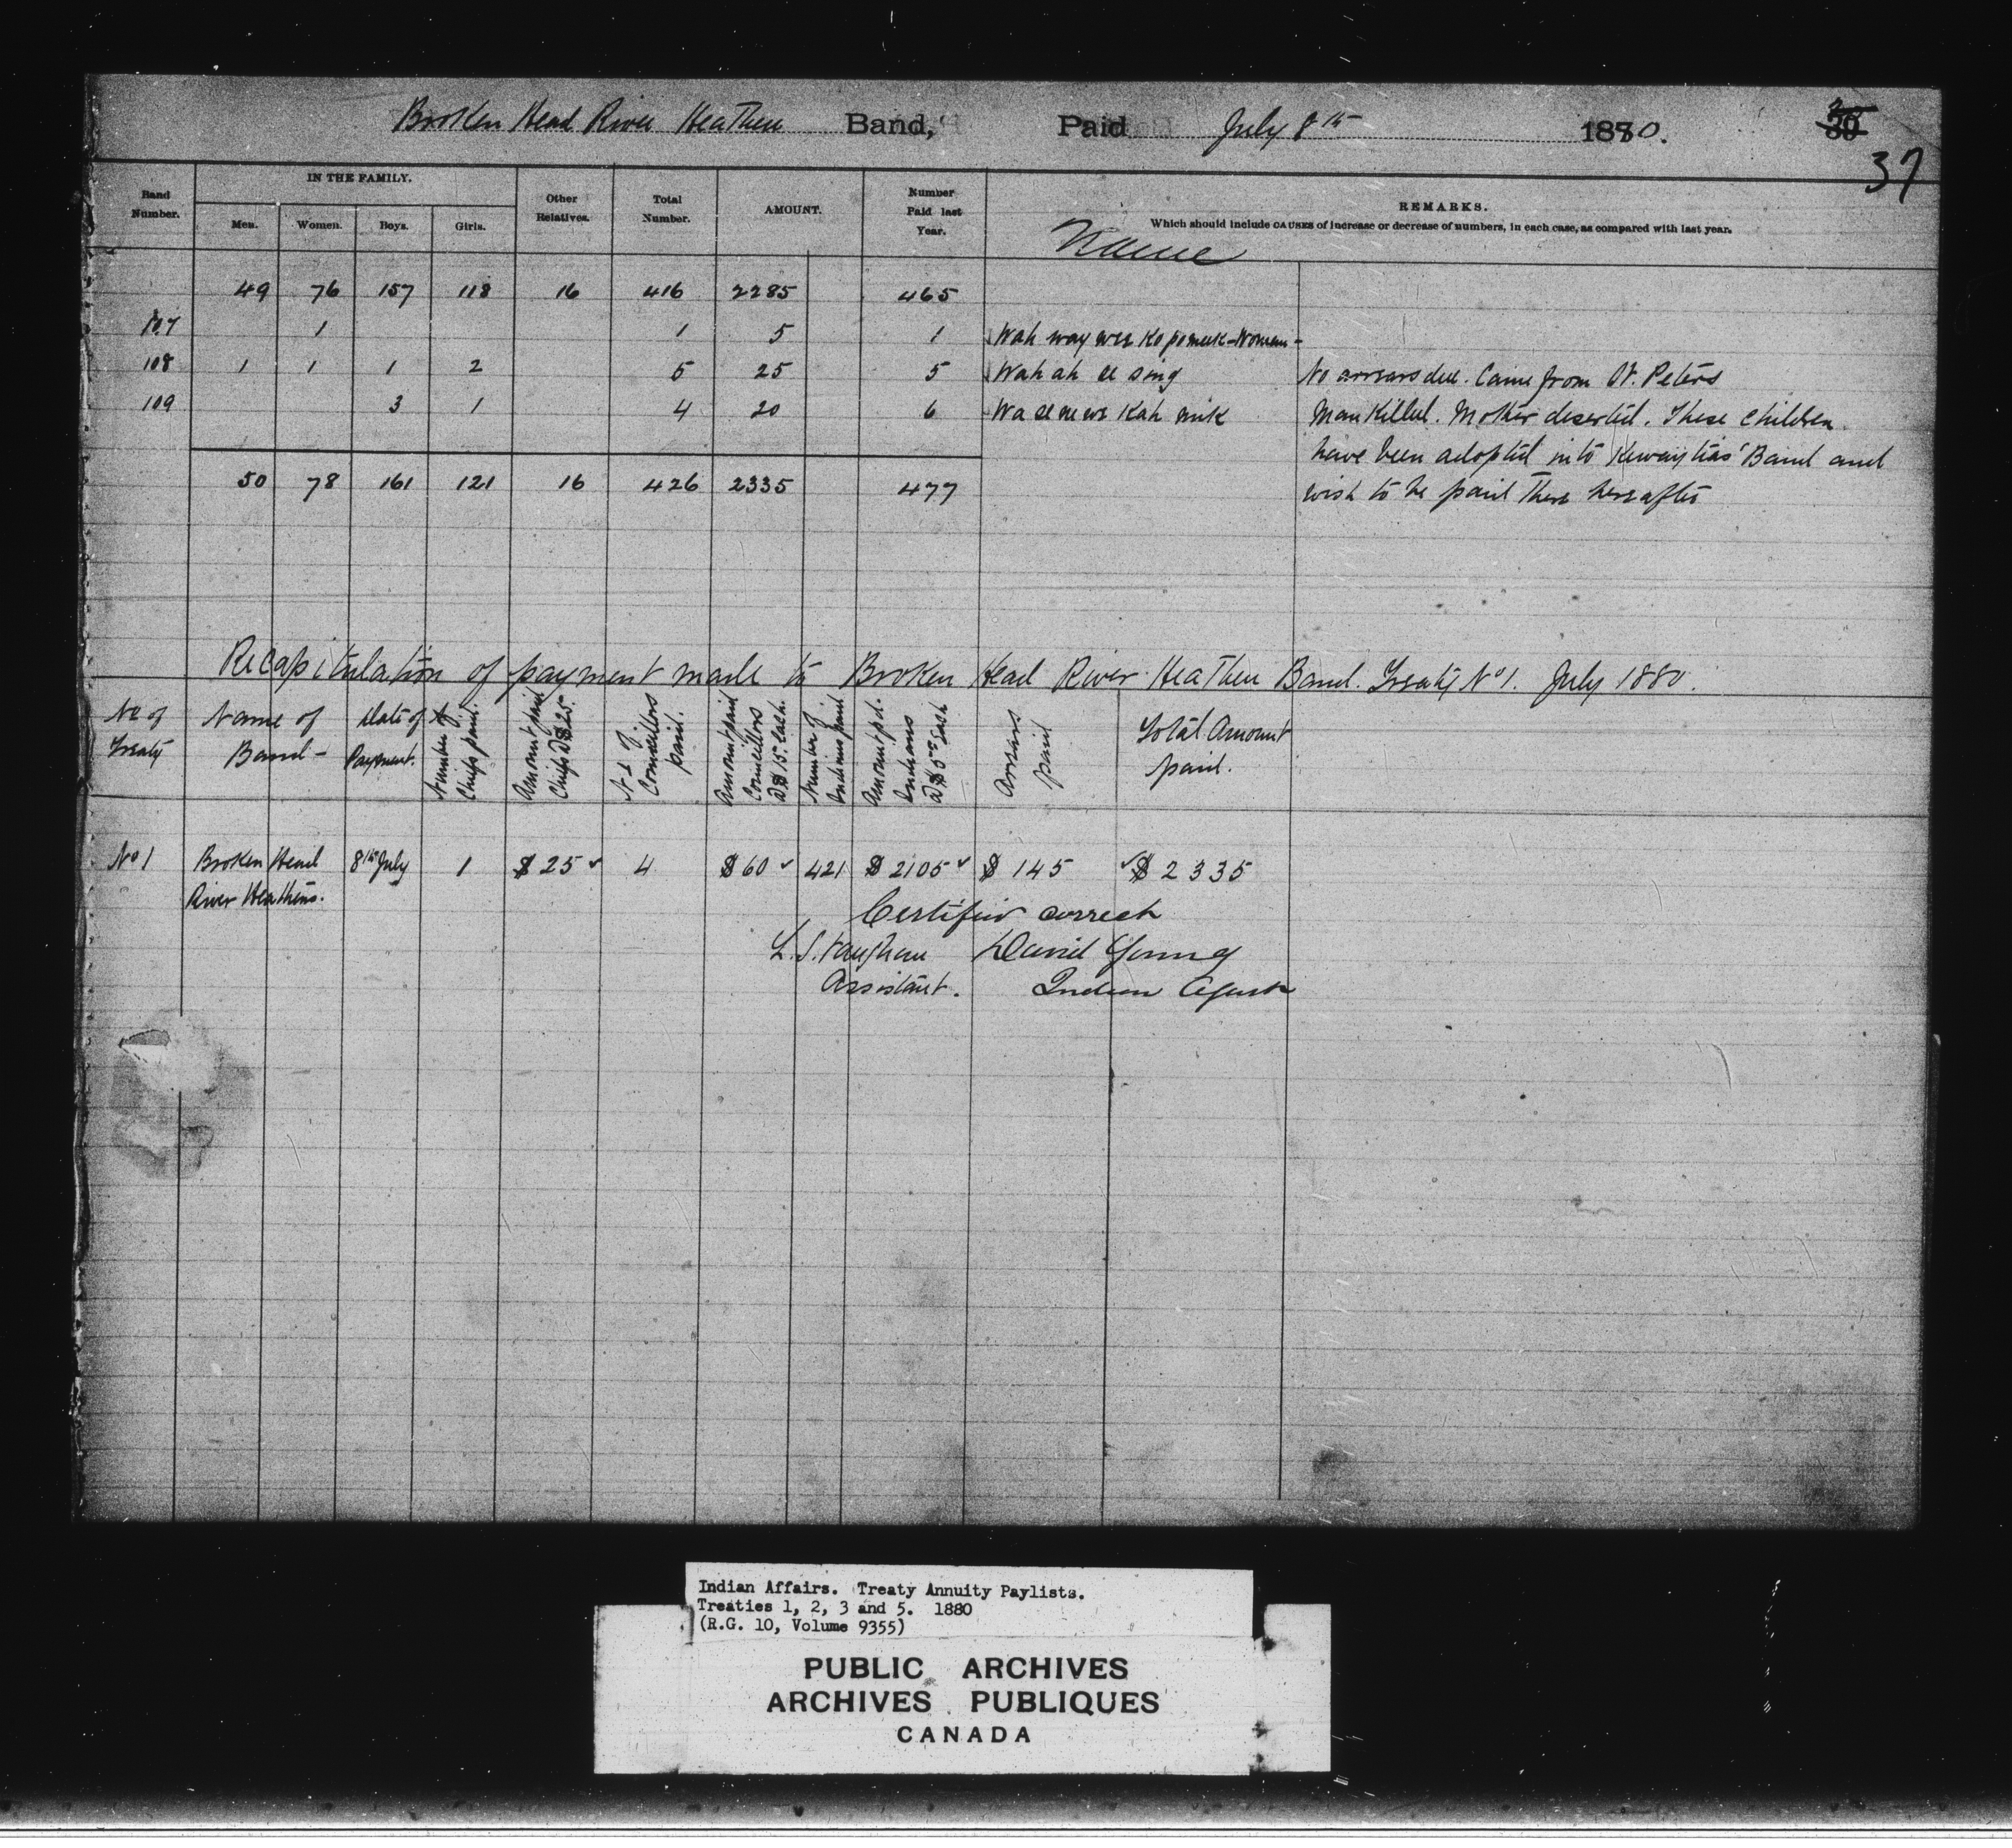 Broken Head River Heathen Band, Paid July 8th 1880.
30
37
Band Number.
IN THE FAMILY.
Men. Women. Boys. Girls.
Other Relatives.
Total Number.
AMOUNT.
Number Paid last Year.
REMARKS.
Which should include CAUSES of increase or decrease of numbers, in each case, as compared with last year.
Name
49 76 157 118 16 416 2285 465
107 1 1 5 1 Wah way
108 1 1 1 2 5 25 5 Wah ah se sing No arrears due. Came from St. Peters
109 3 1 4 20 6 Man Killed. Mother deserted. These children
have been adopted into Band and
50 78 161 121 16 426 2335 477 wish to be paid there hereafter
Recapitulation of payment made to Broken Head River Heathen Band. Treaty No 1. July 1880.
No of Treaty
Name of Band -
Date of Payment.
Number of Chiefs paid.
Amount paid Chiefs @ $25.
No of Councillors paid.
Amount paid Councillors @ $15. each.
Number of Indians paid
Amount pd. Indians @ $5.00 each
Arrears paid
Total Amount paid.
No 1 Broken Head 8th July 1 $25 4 $60 421 $2105 $145 $2335
River Heathens.
Certified correct
L. S. Vaughan David Young
Assistant. Indian Agent
Indian Affairs. Treaty Annuity Paylists.
Treaties 1, 2, 3 and 5. 1880
(R.G. 10, Volume 9355)
PUBLIC ARCHIVES
ARCHIVES PUBLIQUES
CANADA